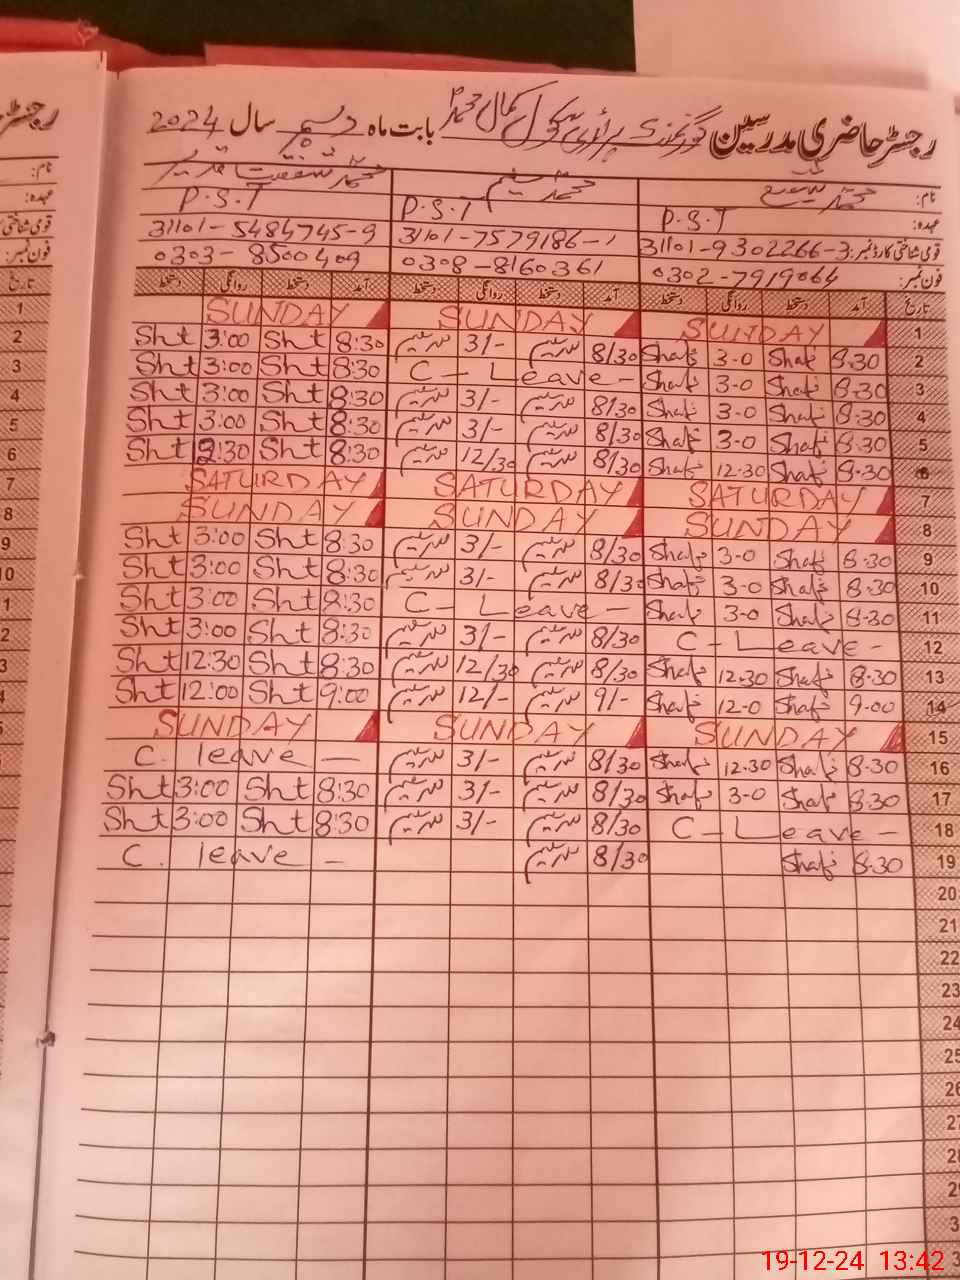 رجسٹر حاضری مدرسین گورنمنٹ پرائمری سکول کمال محمد بابت ماہ دسمبر سال 2024
نام: محمد شفیع محمد سلیم محمد شفقت
عہدہ: P.S.T P.S.T P.S.T
قومی شناختی کارڈ نمبر: 31101-9302266-3 31101-7579186-1 31101-5484745-9
فون نمبر: 0302-7919064 0308-8160361 0303-8500409
تاریخ آمد دستخط روانگی دستخط آمد دستخط روانگی دستخط آمد دستخط روانگی دستخط
SUNDAY SUNDAY SUNDAY 1
Sht 3:00 Sht 8:30 سلیم 3/- سلیم 8/30 Shaf 3-0 Shaf 8-30 2
Sht 3:00 Sht 8:30 C - Leave - Shaf 3-0 Shaf 8-30 3
Sht 3:00 Sht 8:30 سلیم 3/- سلیم 8/30 Shaf 3-0 Shaf 8-30 4
Sht 3:00 Sht 8:30 سلیم 3/- سلیم 8/30 Shaf 3-0 Shaf 8-30 5
Sht 12:30 Sht 8:30 سلیم 12/30 سلیم 8/30 Shaf 12-30 Shaf 8-30 6
SATURDAY SATURDAY SATURDAY 7
SUNDAY SUNDAY SUNDAY 8
Sht 3:00 Sht 8:30 سلیم 3/- سلیم 8/30 Shaf 3-0 Shaf 8-30 9
Sht 3:00 Sht 8:30 سلیم 3/- سلیم 8/30 Shaf 3-0 Shaf 8-30 10
Sht 3:00 Sht 8:30 C - Leave - Shaf 3-0 Shaf 8-30 11
Sht 3:00 Sht 8:30 سلیم 3/- سلیم 8/30 C - Leave - 12
Sht 12:30 Sht 8:30 سلیم 12/30 سلیم 8/30 Shaf 12-30 Shaf 8-30 13
Sht 12:00 Sht 9:00 سلیم 12/- سلیم 9/- Shaf 12-0 Shaf 9-00 14
SUNDAY SUNDAY SUNDAY 15
C. leave - سلیم 3/- سلیم 8/30 Shaf 12-30 Shaf 8-30 16
Sht 3:00 Sht 8:30 سلیم 3/- سلیم 8/30 Shaf 3-0 Shaf 8-30 17
Sht 3:00 Sht 8:30 سلیم 3/- سلیم 8/30 C - Leave - 18
C. leave - سلیم 8/30 Shaf 8-30 19
20
21
22
23
24
25
26
27
28
29
19-12-24 13:42